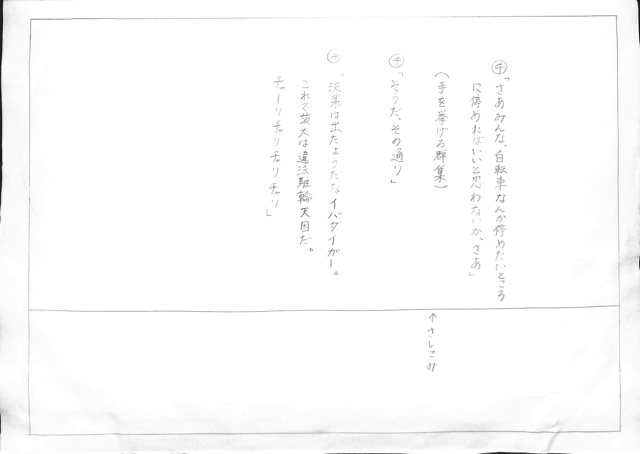 ㋠「さあみんな、自転車なんか停めたいところ
に停めればいいと思わないか、さあ」
(手を挙げる群集)
㋠「そうだ、その通り」
㋠「決果は出たようだなイバダイガー。
これで茨大は違法駐輪天国だ。
チャーリチャリチャリチャリ」
↑さしこみ